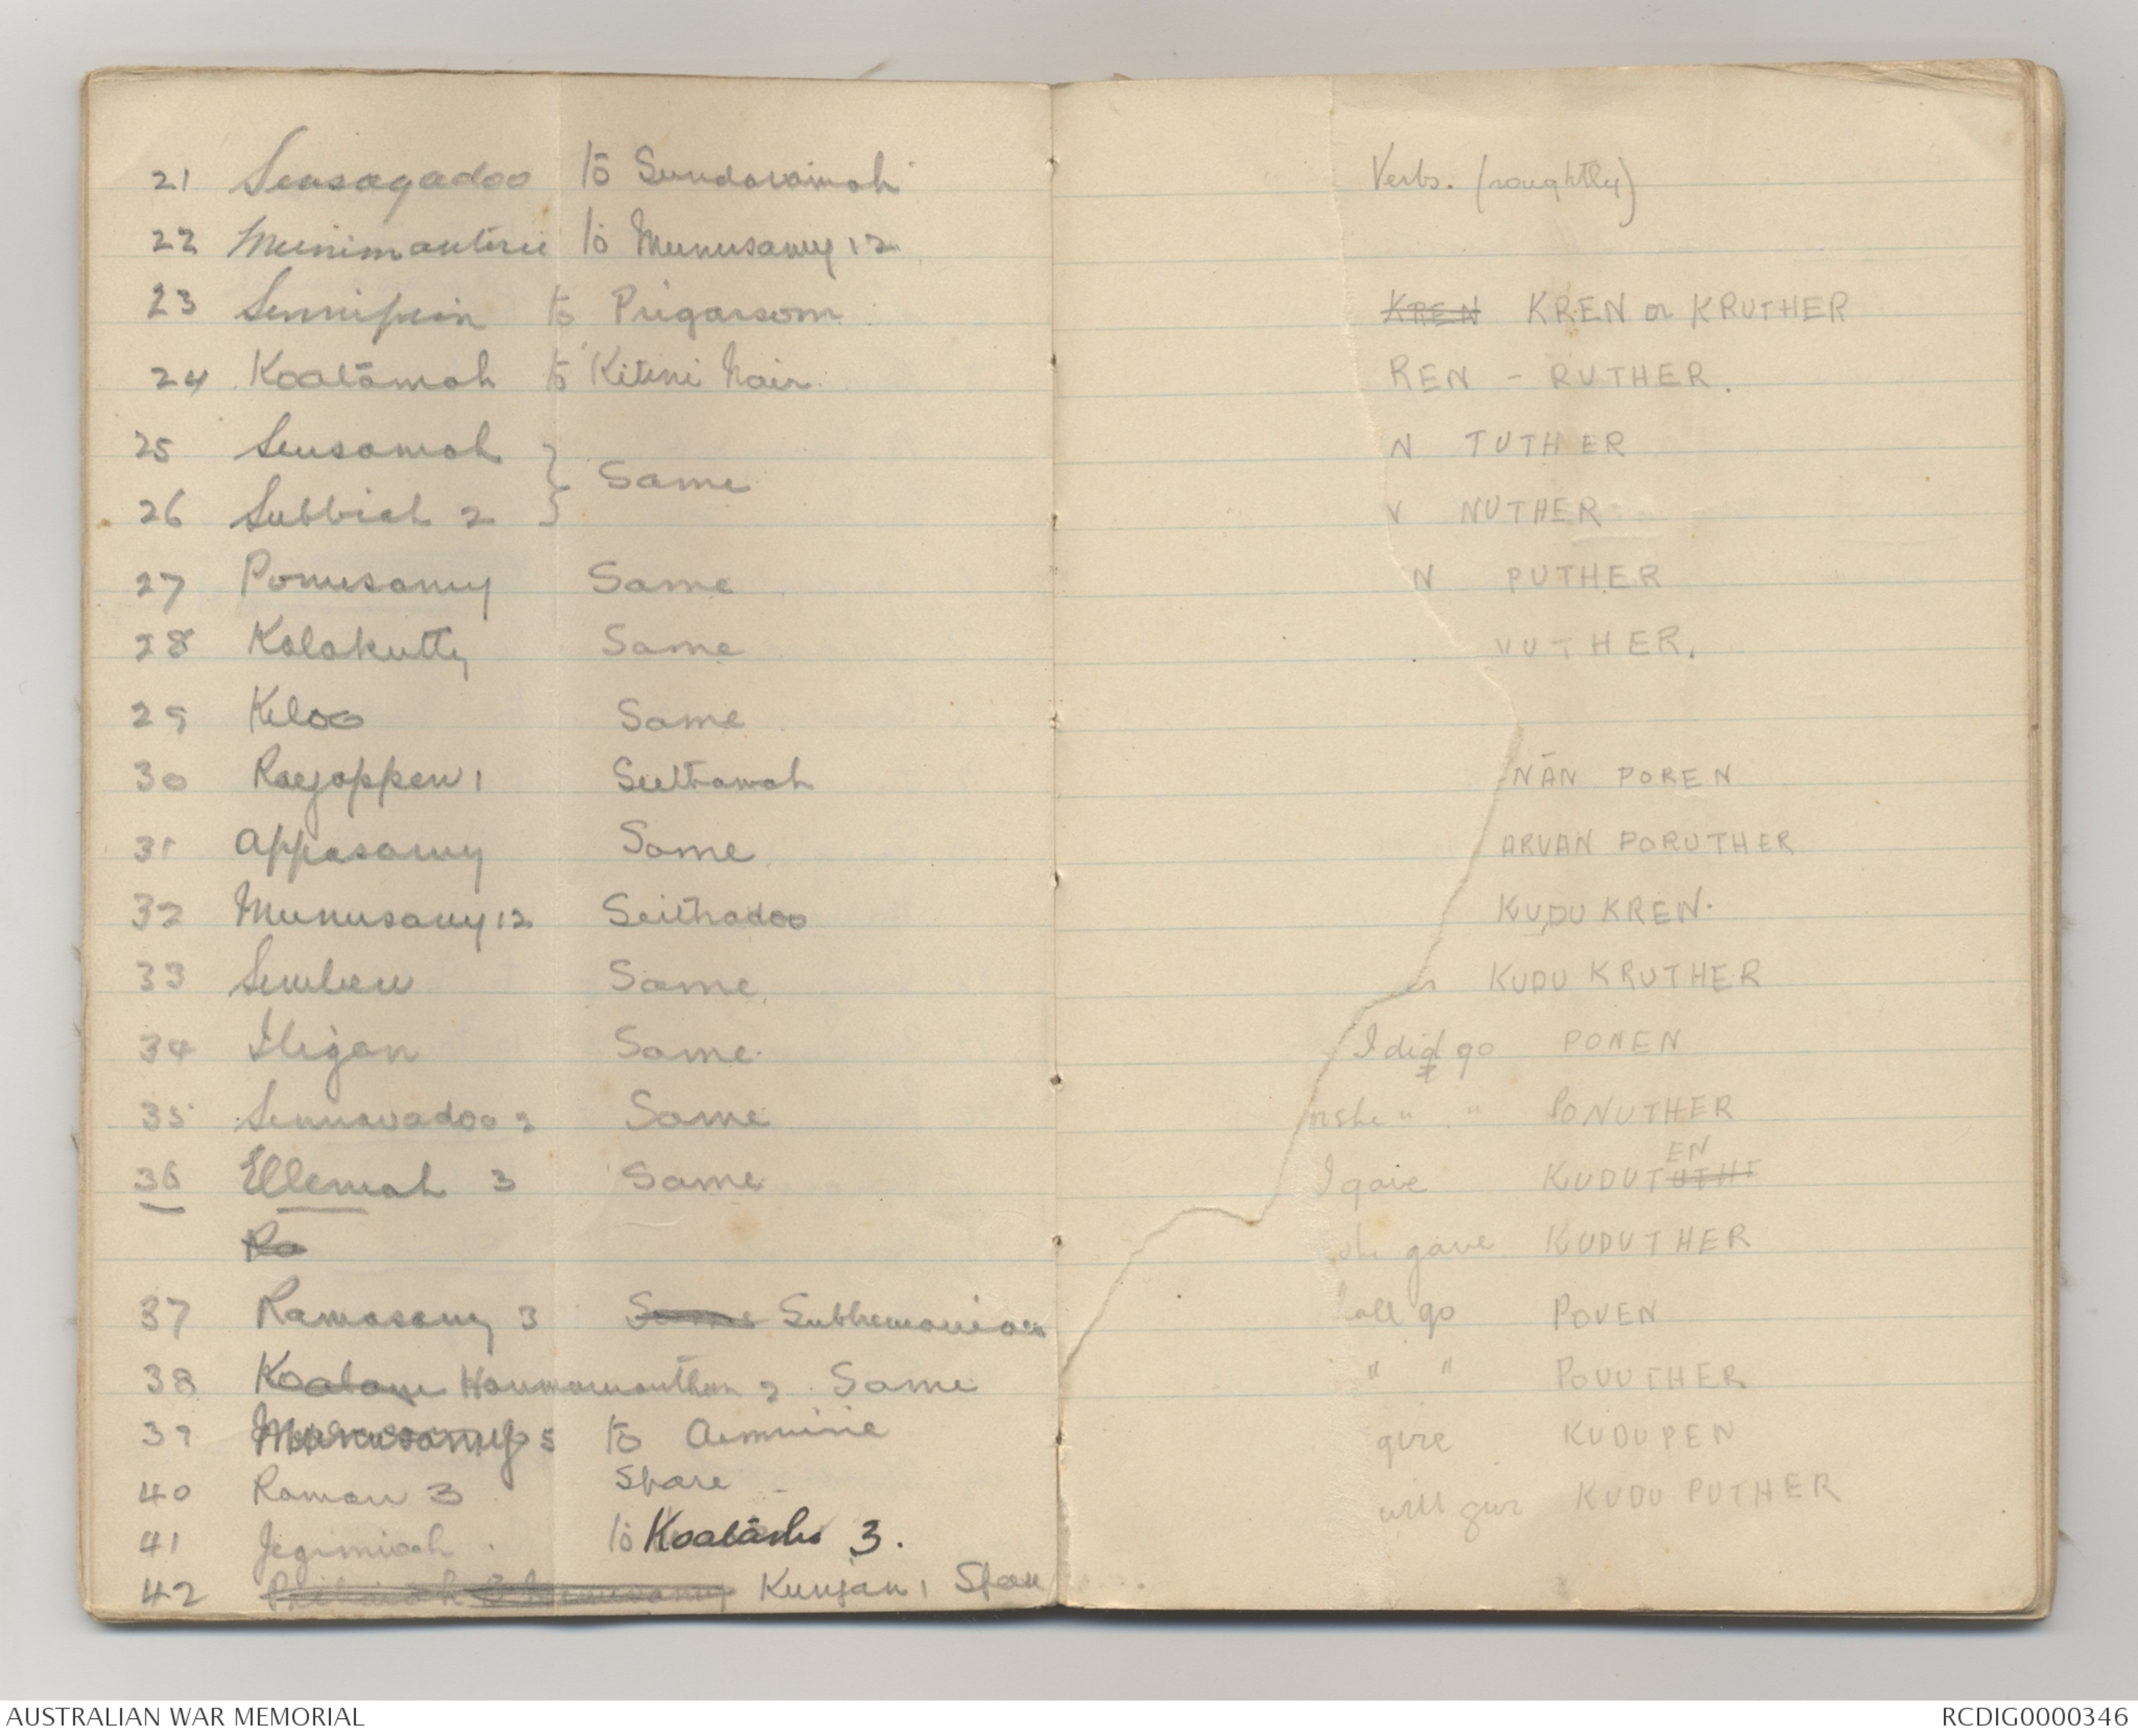 21 Sensagadoo to Sundaramah
22 Munimauterie to Munusamy 12
23 Sennipein to Prigarsom
24 Koatāmah to Kitini Nair
25 Sensamah } Same
26 Subbiah 2
27 Ponusamy Same
28 Kolakutty Same
29 Keloo Same
30 Rayoppen 1 Seethamah
31 Appasamy Same
32 Munusamy 12 Seithadoo
33 Same
34 Iligan Same
35 Sennavadoo 2 Same
36 Ellemah 3 Same
Ra
37 Ramasamy 3 Same Subhemonian
38 Koalam Hanumanthan 2 Same
39 Munusamy 5 to
40 Raman 3 Spare
41 Jegimiah to 3.
42 Kunjan 1 Spare
Verbs. (roughtly)
KREN KREN or KRUTHER
REN - RUTHER.
N TUTHER
V NUTHER
N PUTHER
VUTHER.
NĀN POREN
ARVAN PORUTHER
KUDU KREN.
KUDU KRUTHER
I did go PONEN
she " " PONUTHER
EN
I gave KUDUTUTHE
she gave KUDUTHER
all go POVEN
" " POVUTHER
give KUDUPEN
will give KUDU PUTHER
AUSTRALIAN WAR MEMORIAL
RCDIG0000346